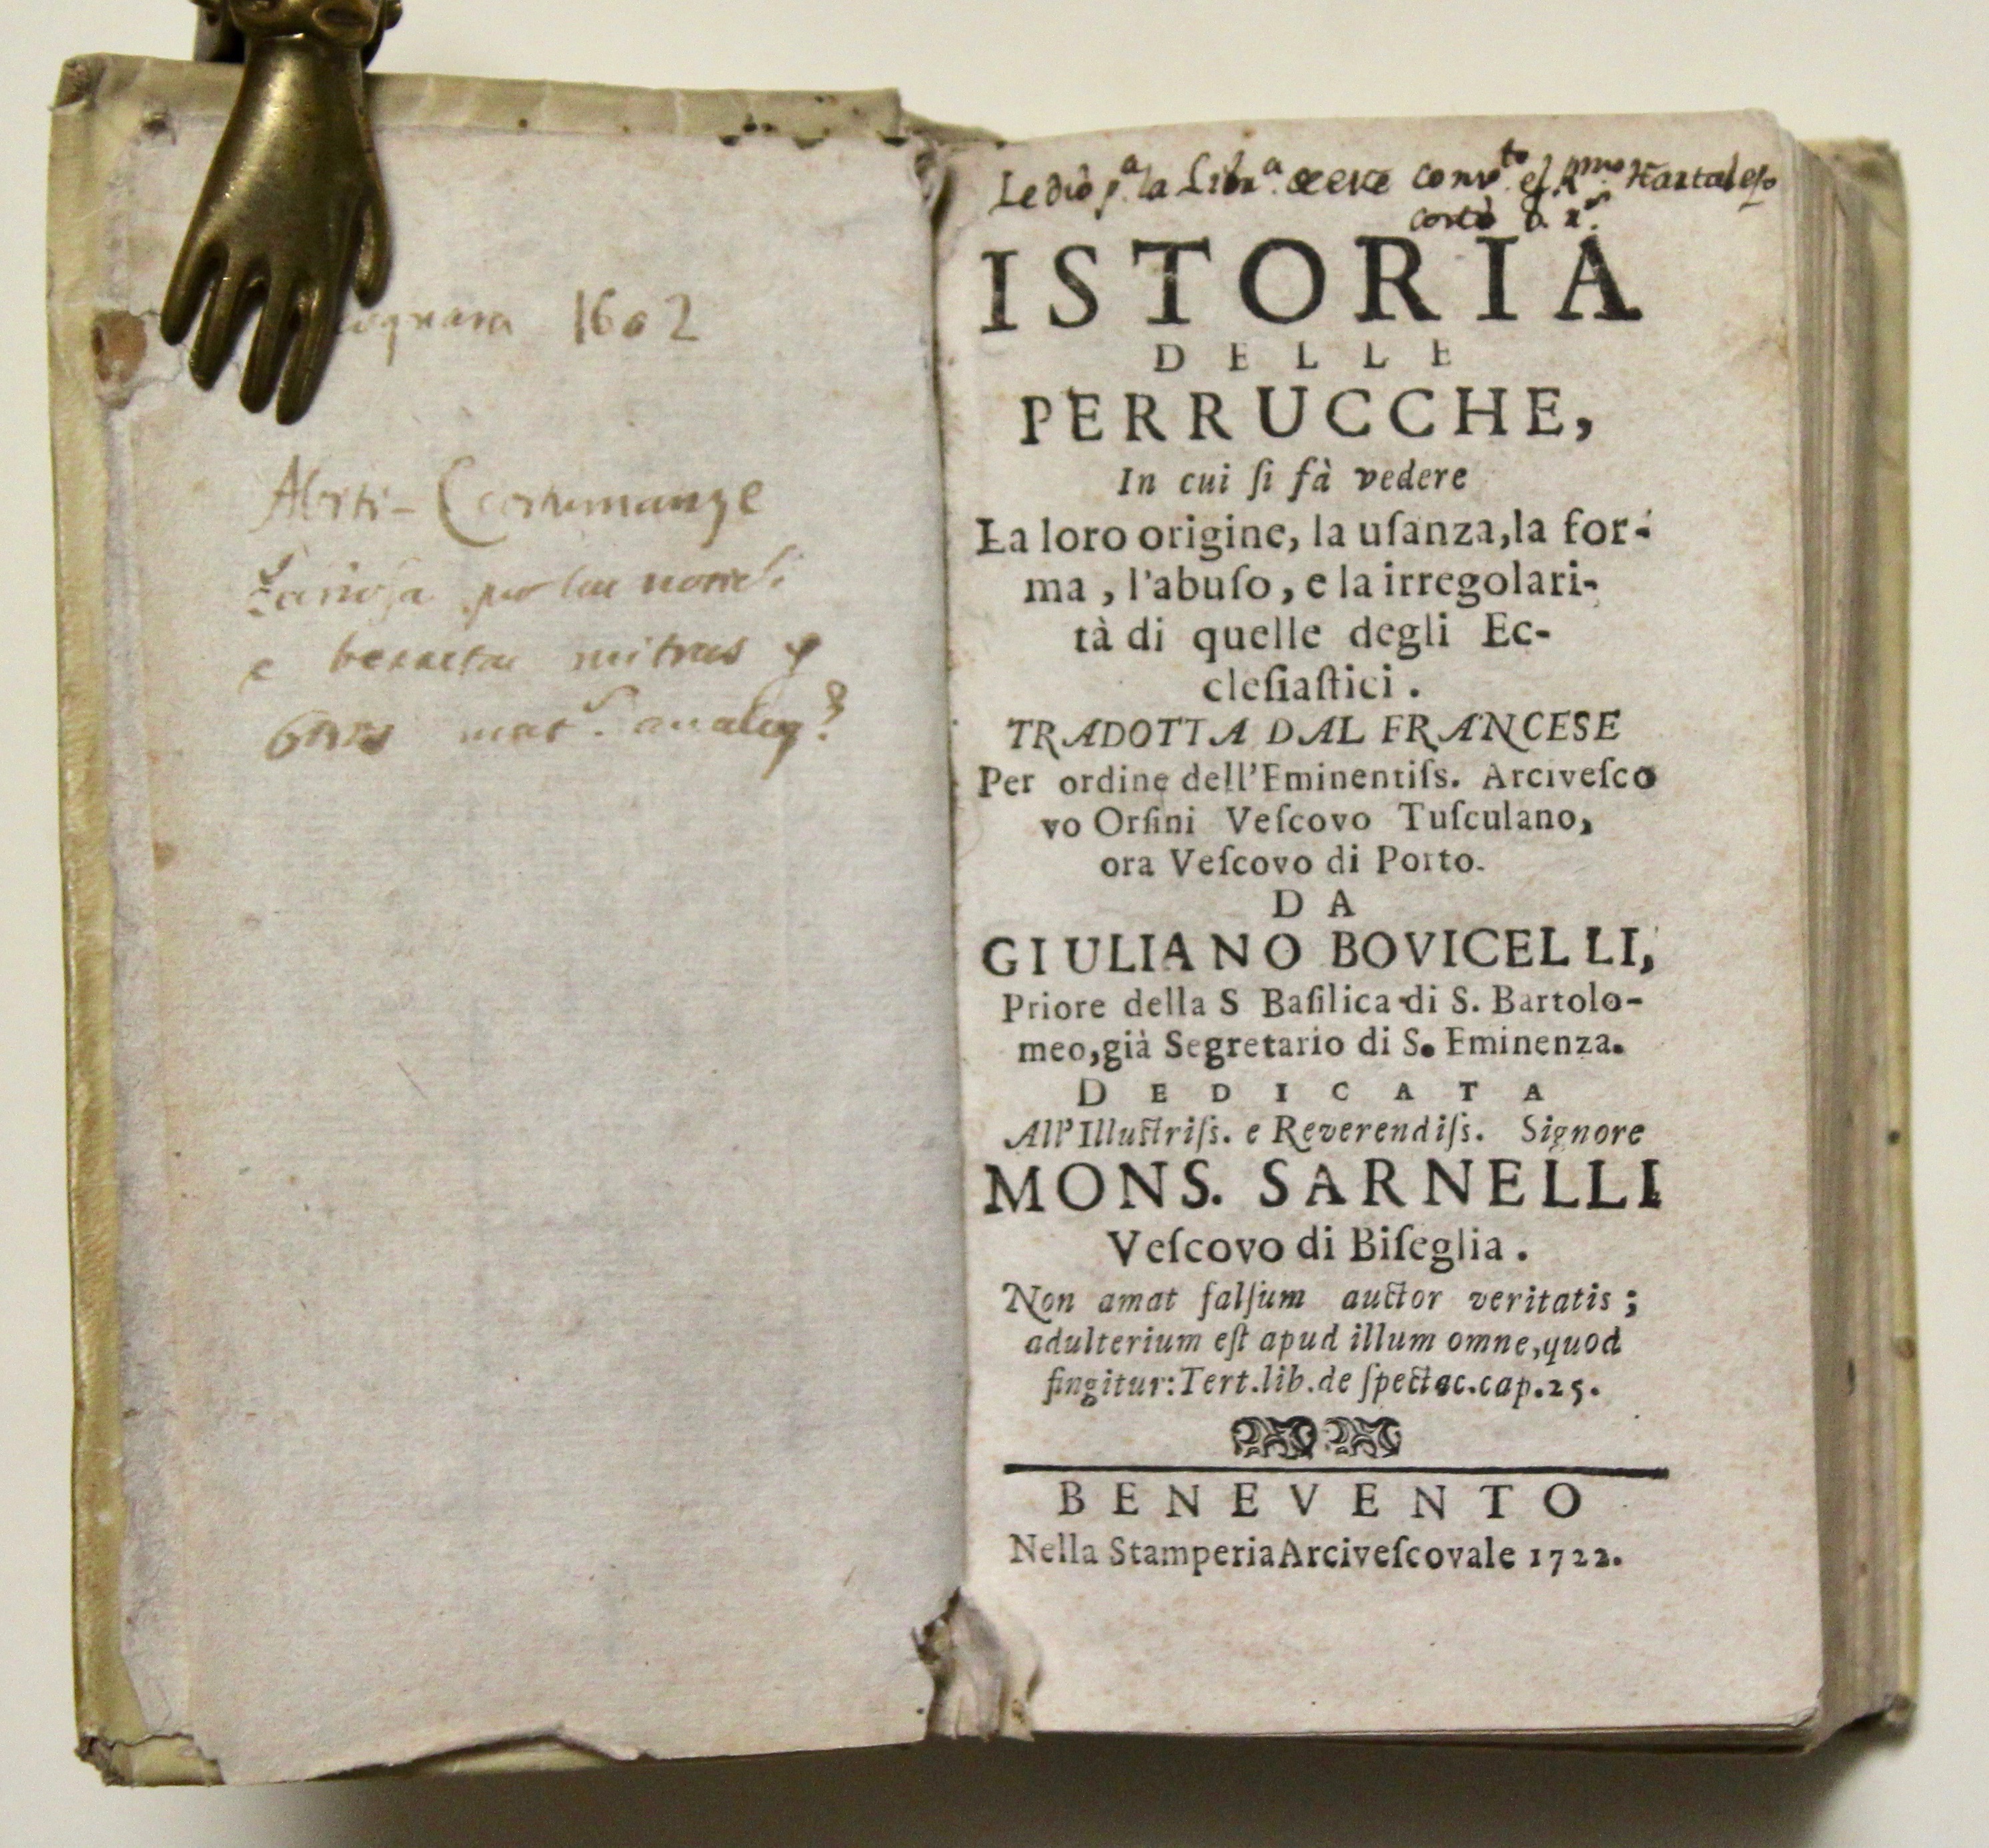 1602
e mitras
Le diò pᵃ. la Libᵃ. convᵗᵒ. el
ISTORIA
DELLE
PERRUCCHE,
In cui ſi fà vedere
La loro origine, la uſanza, la for-
ma, l'abuſo, e la irregolari-
tà di quelle degli Ec-
cleſiaſtici.
TRADOTTA DAL FRANCESE
Per ordine dell'Eminentiſs. Arciveſco
vo Orſini Veſcovo Tuſculano,
ora Veſcovo di Porto.
DA
GIULIANO BOVICELLI,
Priore della S Baſilica di S. Bartolo-
meo, già Segretario di S. Eminenza.
DEDICATA
All'Illuſtriſs. e Reverendiſs. Signore
MONS. SARNELLI
Veſcovo di Biſeglia.
Non amat falſum auctor veritatis;
adulterium eſt apud illum omne, quod
fingitur: Tert. lib. de ſpectac. cap. 25.
BENEVENTO
Nella Stamperia Arciveſcovale 1722.